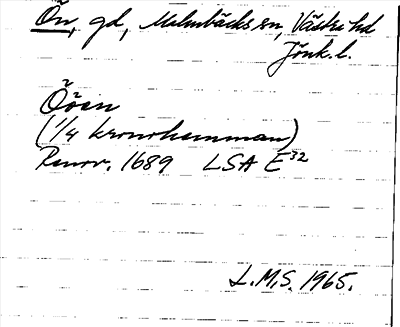 Ön, gd, Malmbäcks sn, Västra hd
Jönk. l.
Öön
(1/4 kronohemman)
Renov. 1689 LSA E32
L.M.S. 1965.